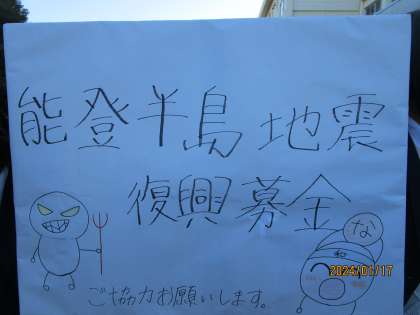 能登半島地震
復興募金
な
ご協力お願いします。
2024/01/17